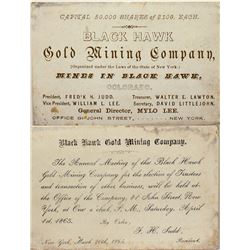 CAPITAL 50,000 SHARES OF $100. EACH.
BLACK HAWK
Gold Mining Company,
(Organized under the Laws of the State of New York.)
MINES IN BLACK HAWK,
COLORADO.
President, FRED'K H. JUDD. Treasurer, WALTER E. LAWTON.
Vice President, WILLIAM L. LEE. Secretary, DAVID LITTLEJOHN.
General Director, MYLO LEE.
OFFICE JOHN STREET, NEW-YORK.
Black Hawk Gold Mining Company.
The Annual Meeting of the Black Hawk
Gold Mining Company for the election of Trustees
and transaction of other business, will be held at
the Office of the Company, John Street, New
York, at One o'clock, P. M., Saturday, April
1st, 1865.
By Order,
F. H. Judd
New York, March 20th, 1865. President.